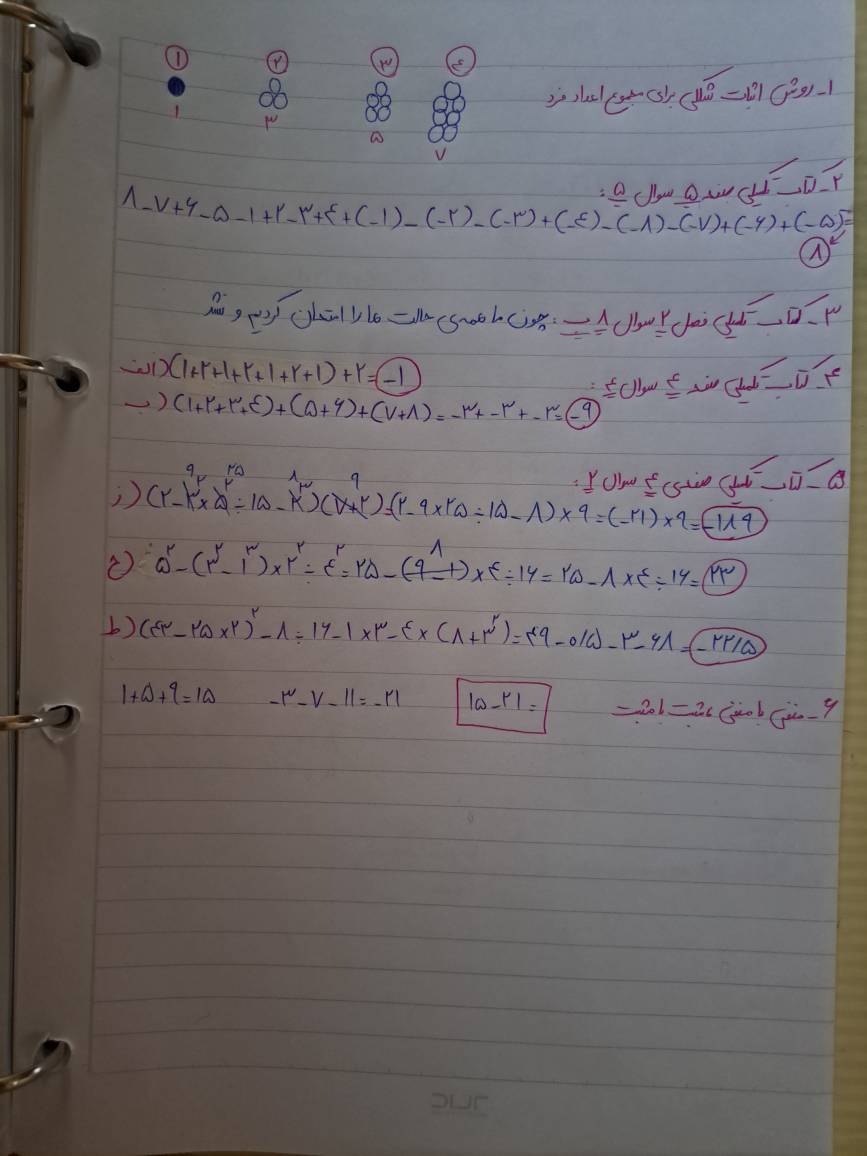 ۱ ۲ ۳ ۴
۱- روش اثبات شکلی برای مجموع اعداد فرد
۱ ۳ ۵ ۷
۲- کتاب تکمیلی صفحه ۵ سوال ۵:
۸-۷+۶-۵-۱+۲-۳+۴+(-۱)-(-۲)-(-۳)+(-۴)-(-۸)-(-۷)+(-۶)+(-۵)=
۸
۳- کتاب تکمیلی فصل ۲ سوال ۸ ب: چون ما همه‌ی حالت ها را امتحان کردیم و نشد
۴- کتاب تکمیلی صفحه ۴ سوال ۴:
الف) (۱+۲+۱+۲+۱+۲+۱)+۲=-۱
ب) (۱+۲+۳+۴)+(۵+۶)+(۷+۸)=-۳+-۳+-۳=-۹
۵- کتاب تکمیلی صفحه‌ی ۴ سوال ۲:
ز) (۲-۳²×۵²÷۱۵-۲³)(۷+۲)=(۲-۹×۲۵÷۱۵-۸)×۹=(-۲۱)×۹=-۱۸۹
ح) ۵²-(۳²-۱³)×۲²÷۴²=۲۵-(۹-۱)×۴÷۱۶=۲۵-۸×۴÷۱۶=۲۳
ط) (۴۳-۲۵×۲)²-۸÷۱۶-۱×۳-۴×(۸+۳²)=۴۹-۰/۵-۳-۶۸=-۲۲/۵
۶- منفی با منفی مثبت با مثبت
۱+۵+۹=۱۵ -۳-۷-۱۱=-۲۱ ۱۵-۲۱=